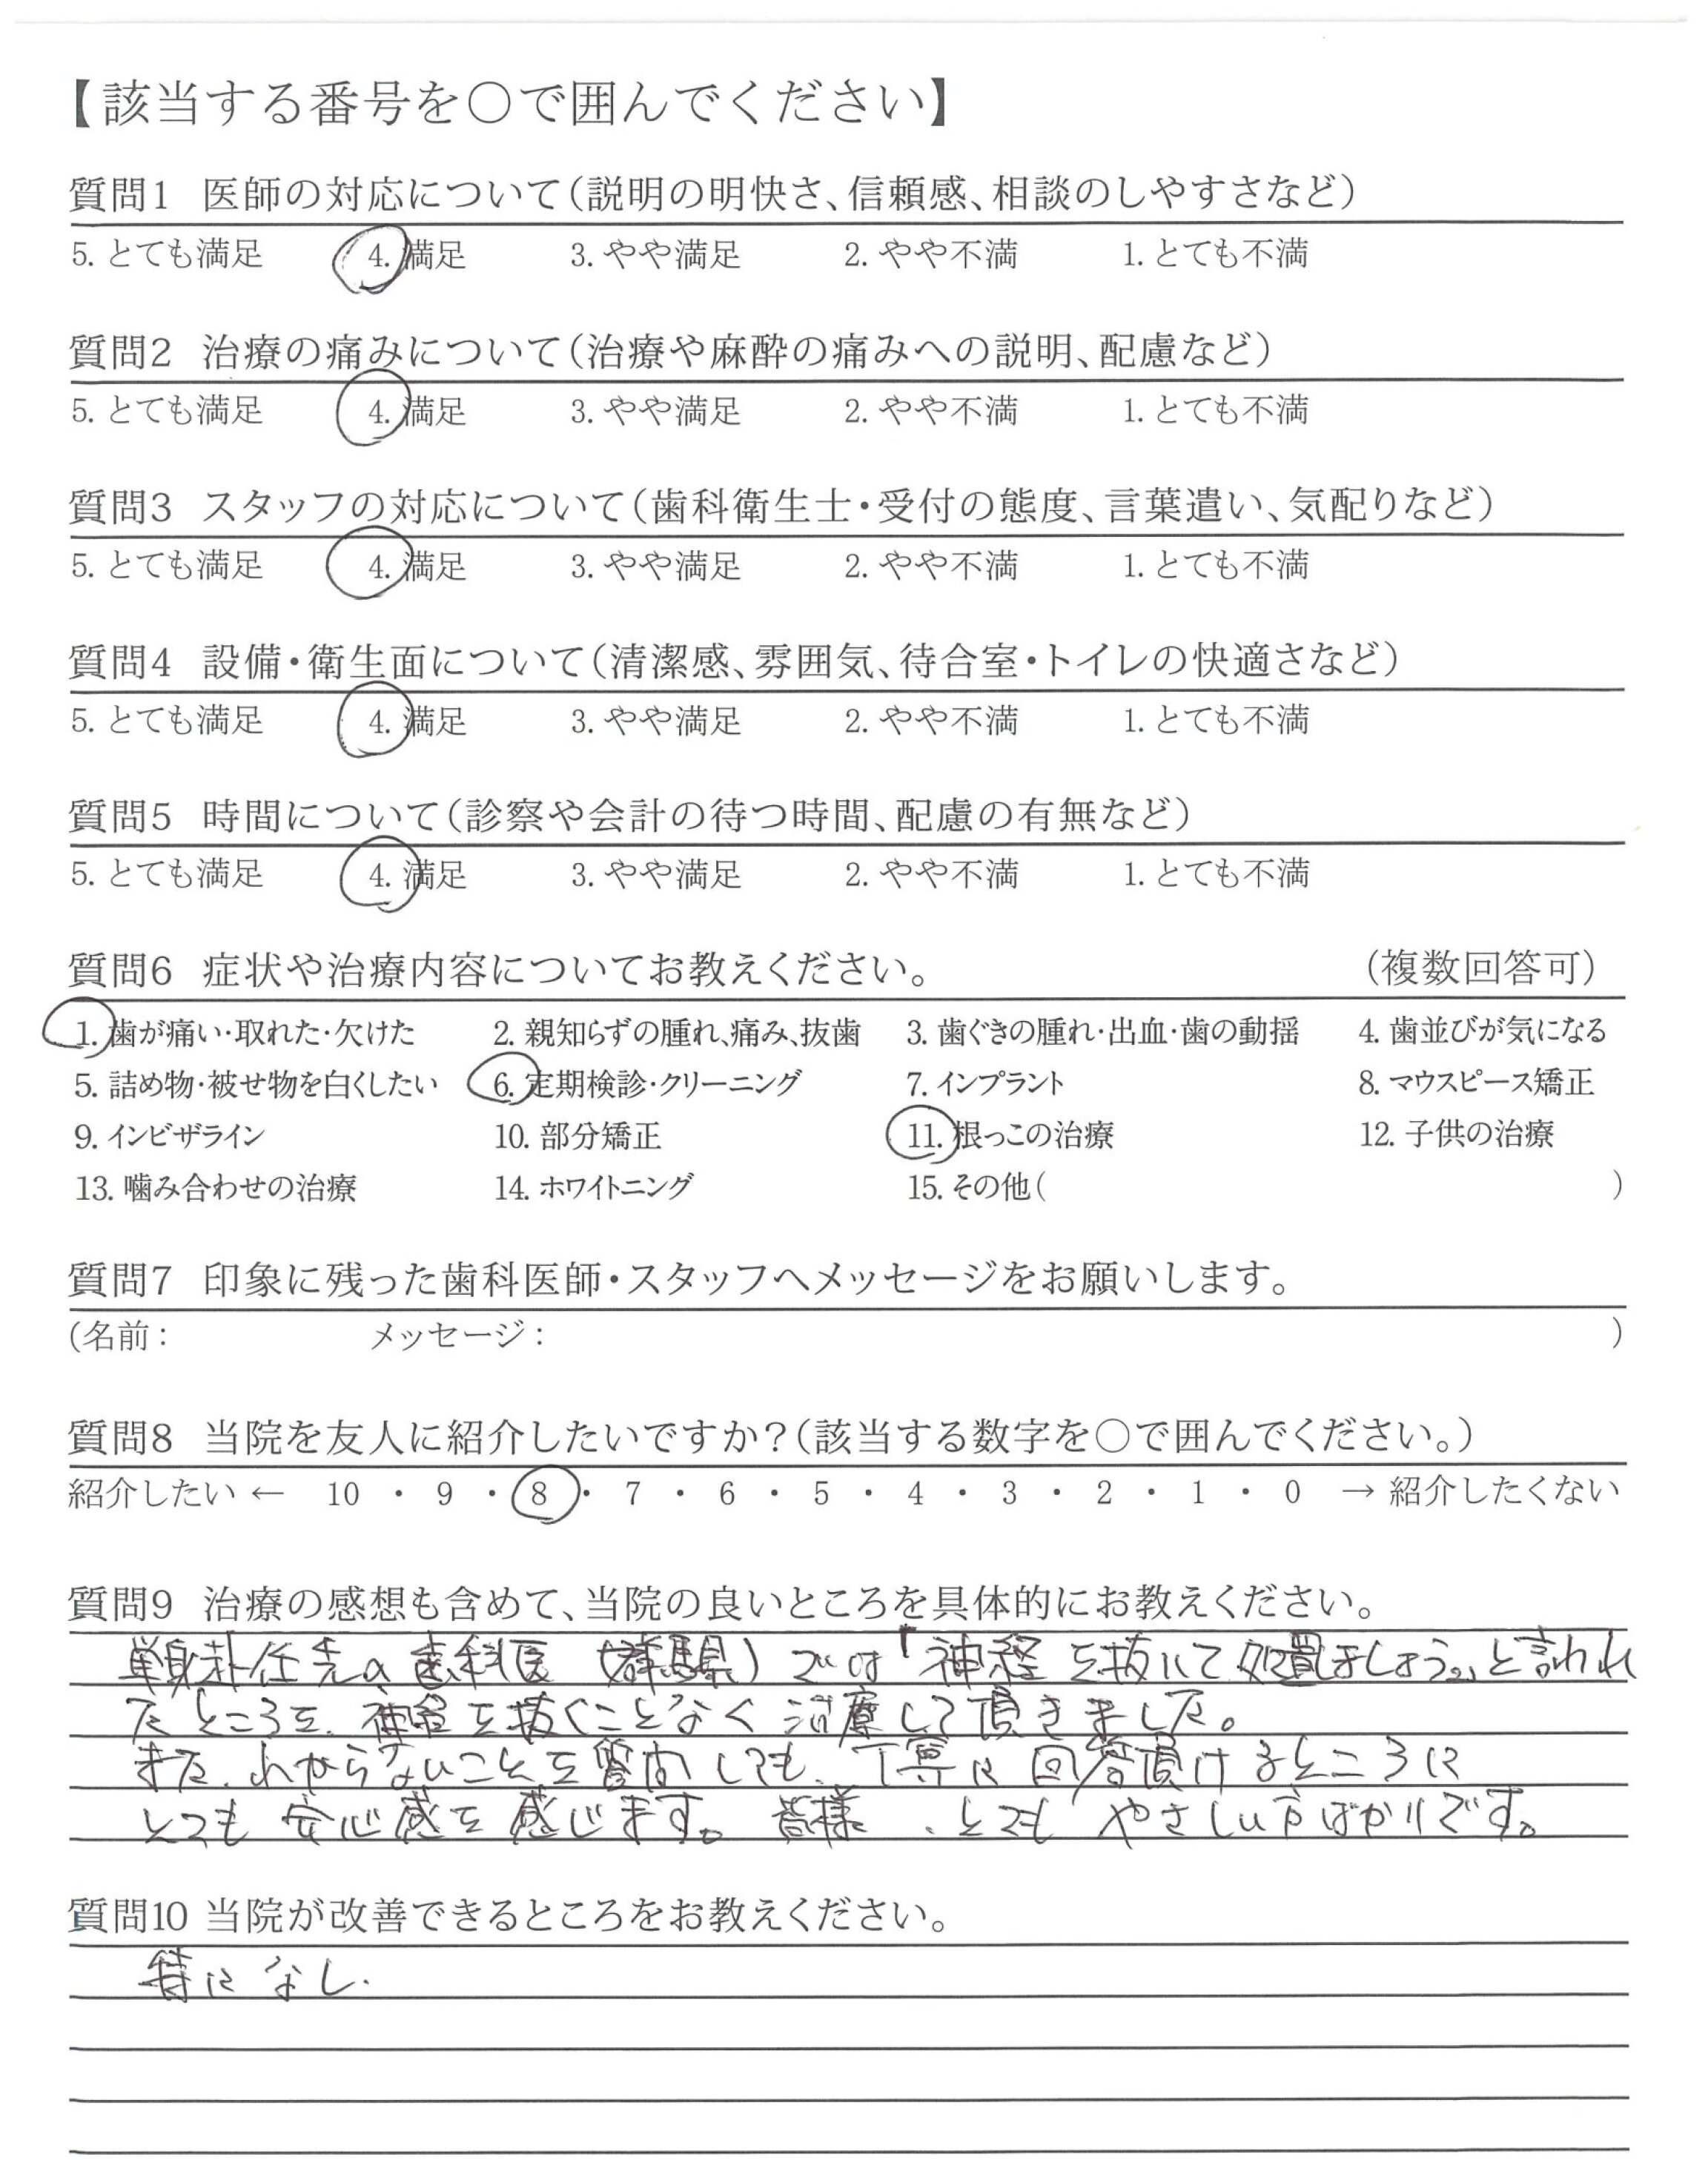 【該当する番号を〇で囲んでください】
質問1 医師の対応について(説明の明快さ、信頼感、相談のしやすさなど)
5. とても満足 4. 満足 3. やや満足 2. やや不満 1. とても不満
質問2 治療の痛みについて(治療や麻酔の痛みへの説明、配慮など)
5. とても満足 4. 満足 3. やや満足 2. やや不満 1. とても不満
質問3 スタッフの対応について(歯科衛生士・受付の態度、言葉遣い、気配りなど)
5. とても満足 4. 満足 3. やや満足 2. やや不満 1. とても不満
質問4 設備・衛生面について(清潔感、雰囲気、待合室・トイレの快適さなど)
5. とても満足 4. 満足 3. やや満足 2. やや不満 1. とても不満
質問5 時間について(診察や会計の待つ時間、配慮の有無など)
5. とても満足 4. 満足 3. やや満足 2. やや不満 1. とても不満
質問6 症状や治療内容についてお教えください。 (複数回答可)
1. 歯が痛い・取れた・欠けた 2. 親知らずの腫れ、痛み、抜歯 3. 歯ぐきの腫れ・出血・歯の動揺 4. 歯並びが気になる
5. 詰め物・被せ物を白くしたい 6. 定期検診・クリーニング 7. インプラント 8. マウスピース矯正
9. インビザライン 10. 部分矯正 11. 根っこの治療 12. 子供の治療
13. 噛み合わせの治療 14. ホワイトニング 15. その他( )
質問7 印象に残った歯科医師・スタッフへメッセージをお願いします。
(名前: メッセージ: )
質問8 当院を友人に紹介したいですか?(該当する数字を〇で囲んでください。)
紹介したい ← 10 ・ 9 ・ 8 ・ 7 ・ 6 ・ 5 ・ 4 ・ 3 ・ 2 ・ 1 ・ 0 → 紹介したくない
質問9 治療の感想も含めて、当院の良いところを具体的にお教えください。
単身赴任先の歯科医(群馬県)では『神経を抜いて処置ましょう。』と言われ
たところを、神経を抜くことなく治療して頂きました。
また、わからないことを質問しても、丁寧に回答頂けるところに
とても安心感を感じます。皆様、とてもやさしい方ばかりです。
質問10 当院が改善できるところをお教えください。
特になし.